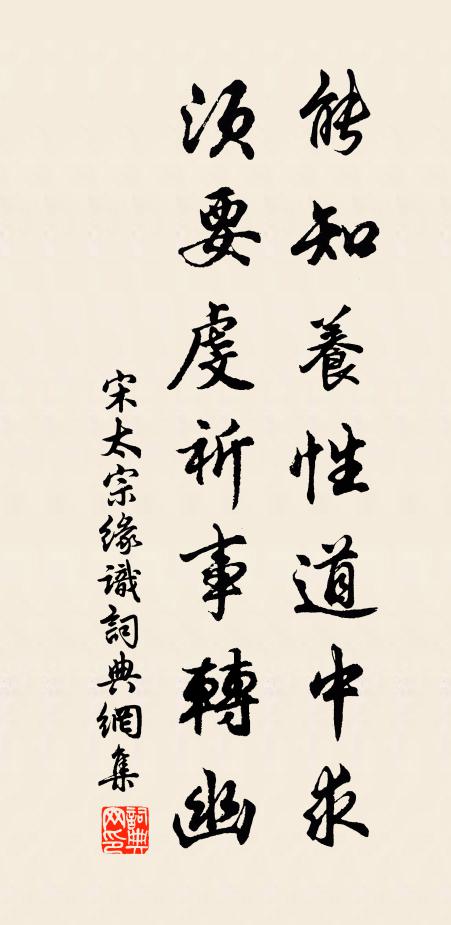 能知養性道中求
須要虔祈事轉幽
宋太宗緣識詞典網集
詞典網印